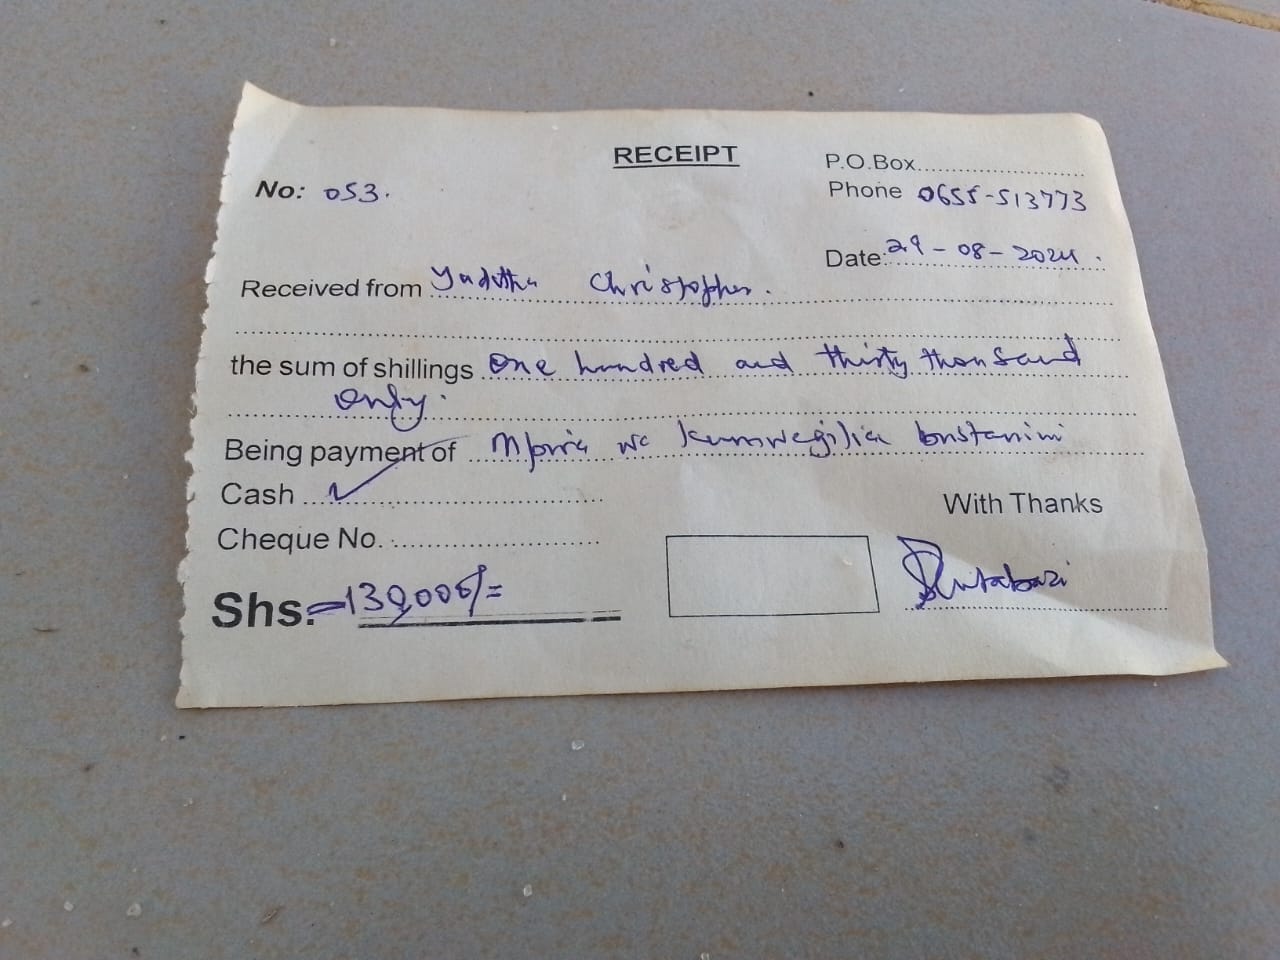 RECEIPT
P.O.Box
No: 053.
Phone 0655-513773
Date: 29-08-2024.
Received from Yuditha Christopher.
the sum of shillings One hundred and thirty thousand
only.
Being payment of Mpira wa kumwagilia bustanini
Cash ✓
With Thanks
Cheque No.
Shs. 130,000/=
Rutabazi